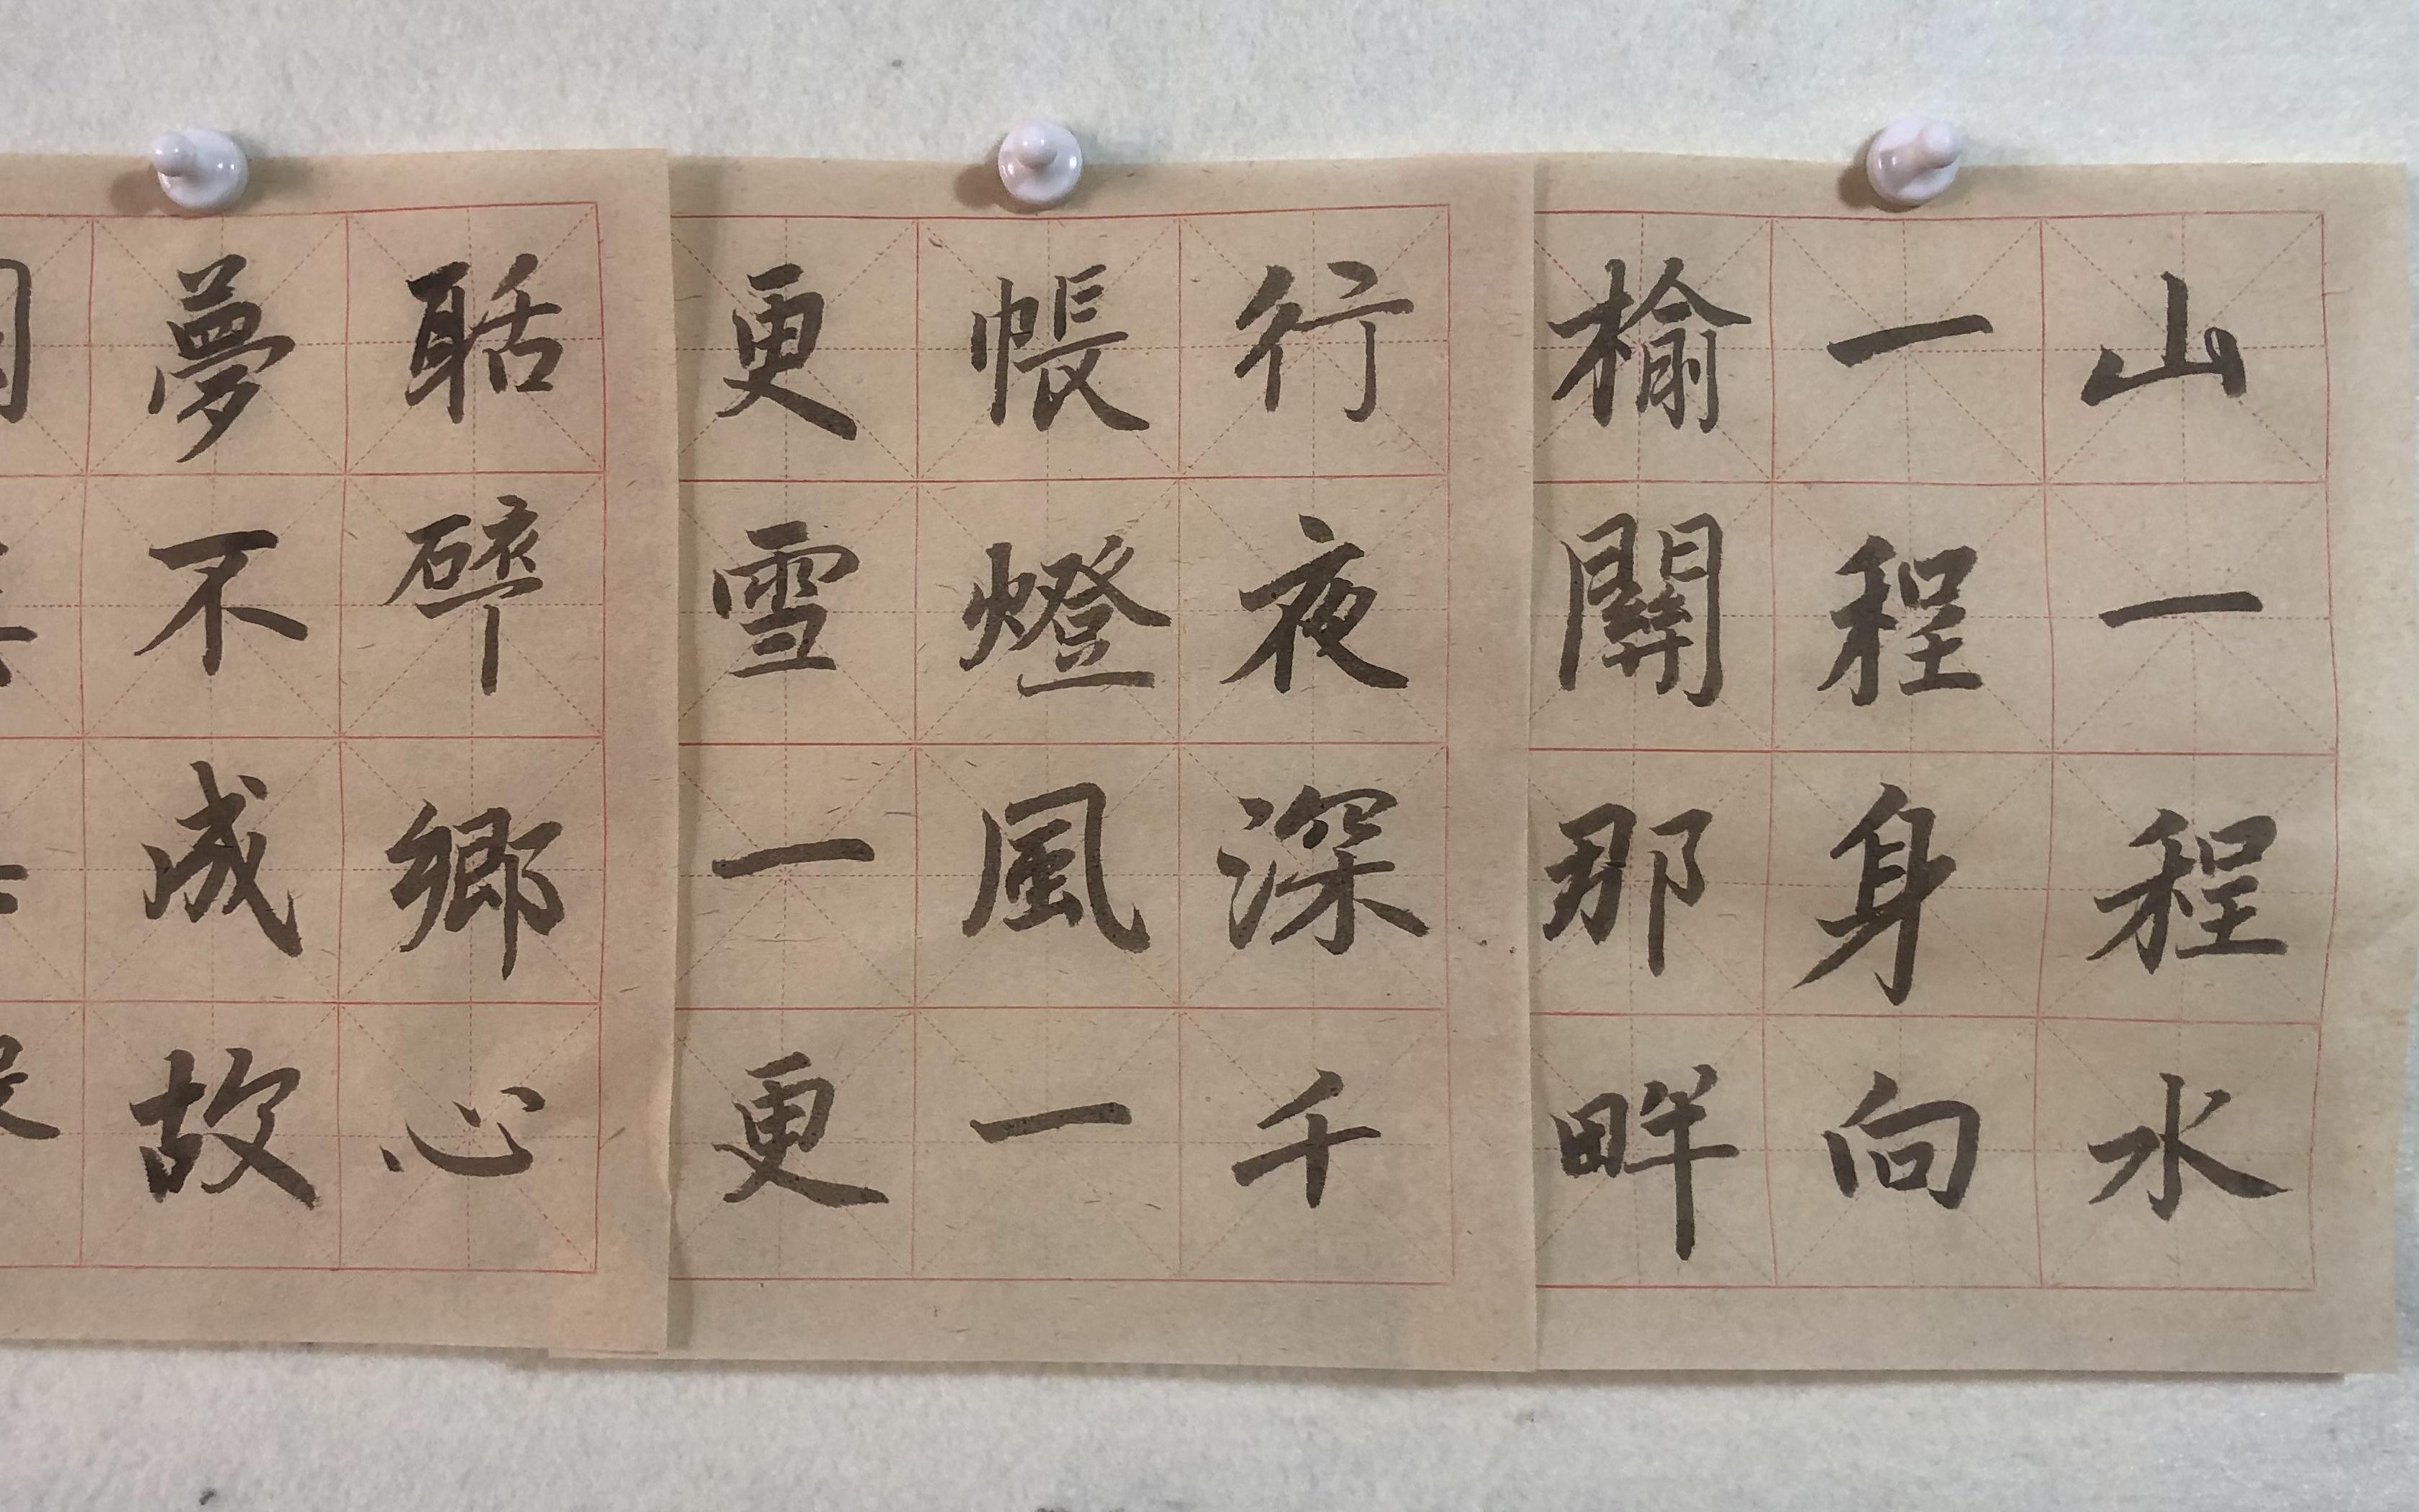 山一程水
一程身向
榆關那畔
行夜深千
帳燈風一
更雪一更
聒碎鄉心
夢不成故